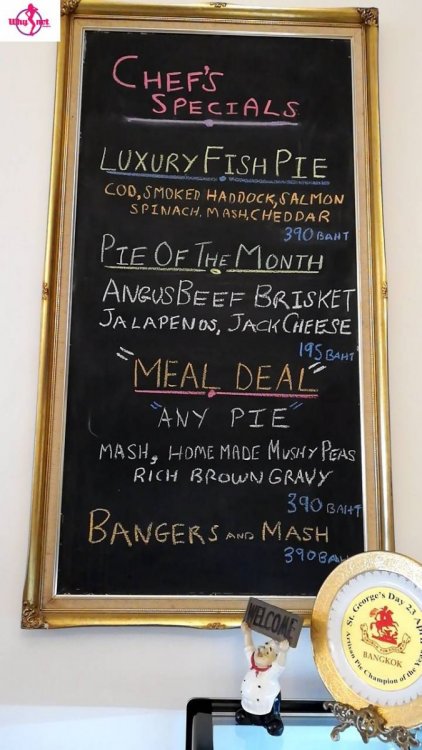 Why net
CHEF'S
SPECIALS
LUXURY FISH PIE
COD, SMOKED HADDOCK, SALMON
SPINACH, MASH, CHEDDAR
390 BAHT
PIE OF THE MONTH
ANGUS BEEF BRISKET
JALAPENOS, JACK CHEESE
195 BAHT
"MEAL DEAL"
"ANY PIE"
MASH, HOME MADE MUSHY PEAS
RICH BROWN GRAVY
390 BAHT
BANGERS AND MASH
390 BAH
WELCOME
St George's Day 23 Apri
BANGKOK
Artisan Pie Champion of the Year